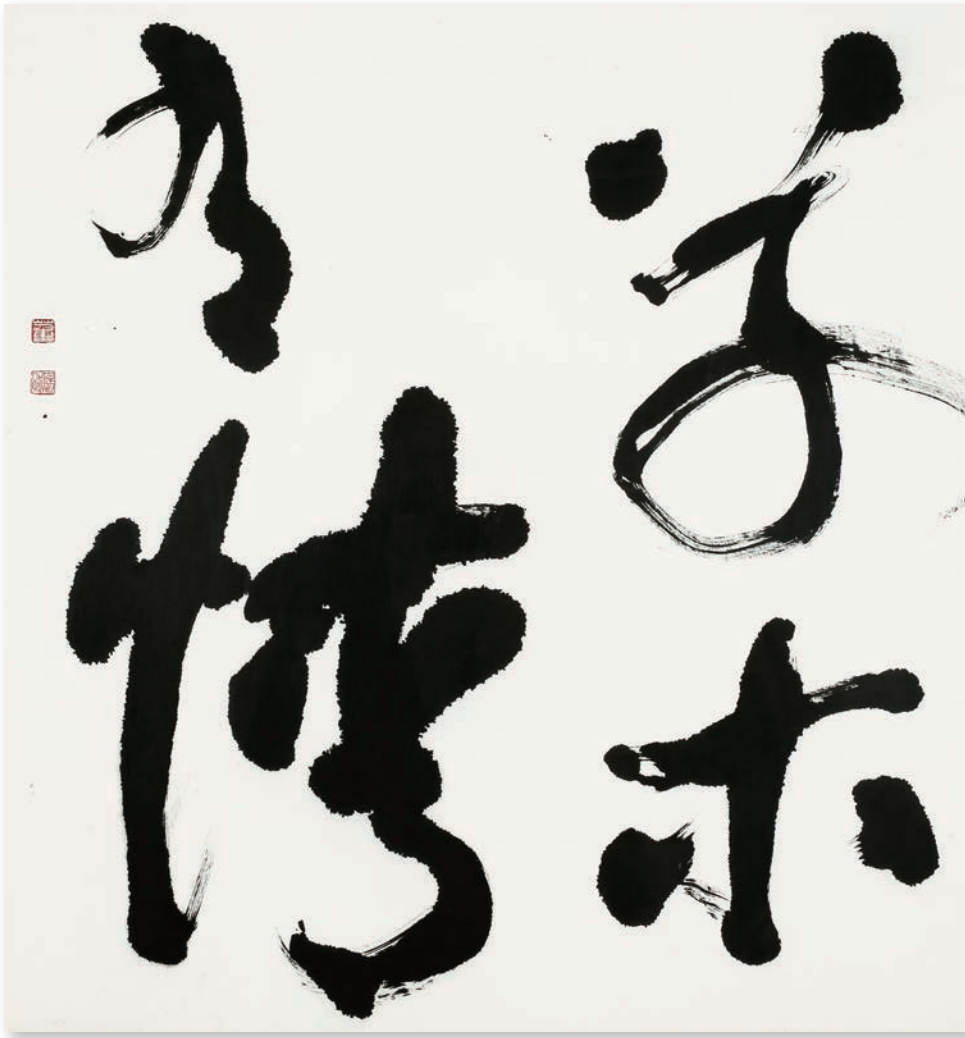 草木
有情